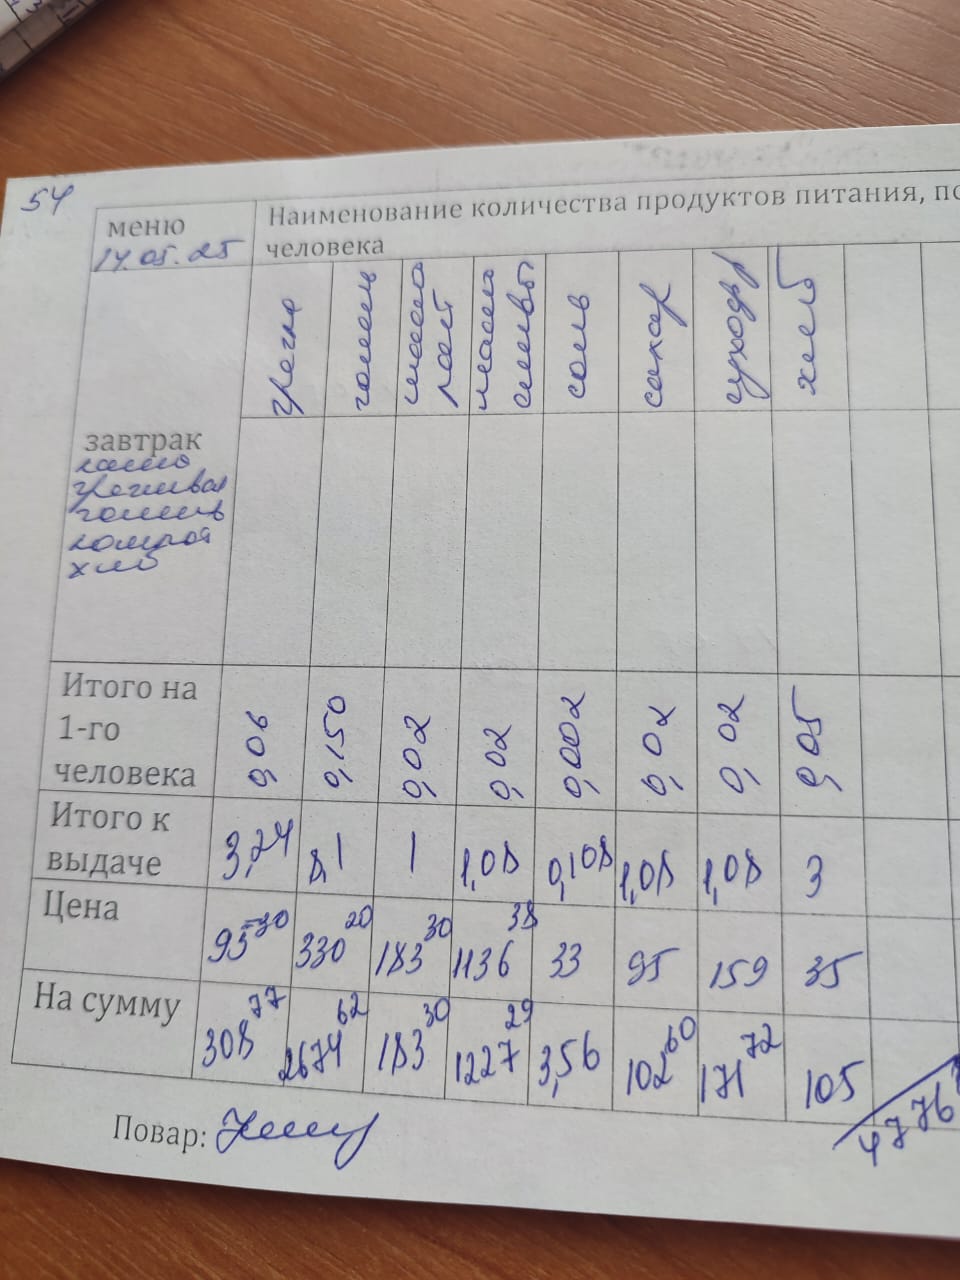 54
меню
14.05.25
Наименование количества продуктов питания, по
человека
гречка
голень
масло раст
масло сливы
соль
сахар
сухофр
хлеб
завтрак
каша
гречневая
голень
компот
хлеб
Итого на 1-го человека 0,06 0,150 0,02 0,02 0,002 0,02 0,02 0,05
Итого к выдаче 3,24 8,1 1 1,08 0,108 1,08 1,08 3
Цена 95-30 330 20 183 30 1136 38 33 95 159 35
На сумму 308 77 2674 62 183 30 1227 29 3,56 102 60 171 72 105
4776
Повар: